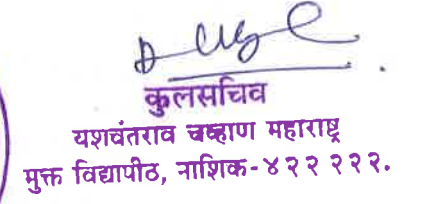 कुलसचिव
यशवंतराव चव्हाण महाराष्ट्र
मुक्त विद्यापीठ, नाशिक-४२२ २२२.